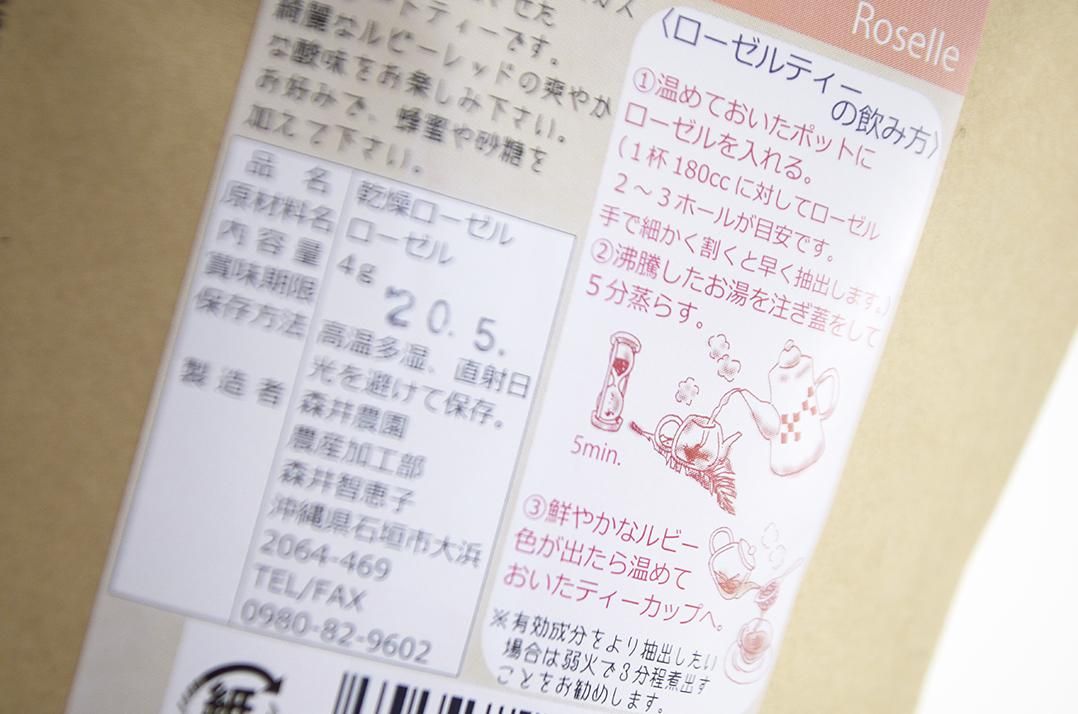 せた
トティーです。
綺麗なルビーレッドの爽やか
な酸味をお楽しみ下さい。
お好みで、蜂蜜や砂糖を
加えて下さい。
品名 乾燥ローゼル
原材料名 ローゼル
内容量 4g
賞味期限 20.5.
保存方法 高温多湿、直射日
光を避けて保存。
製造者 森井農園
農産加工部
森井智恵子
沖縄県石垣市大浜
2064-469
TEL/FAX
0980-82-9602
紙
Roselle
〈ローゼルティー
の飲み方〉
①温めておいたポットに
ローゼルを入れる。
(1杯180ccに対してローゼル
2～3ホールが目安です。
手で細かく割くと早く抽出します。)
②沸騰したお湯を注ぎ蓋をして
5分蒸らす。
5min.
③鮮やかなルビー
色が出たら温めて
おいたティーカップへ。
※有効成分をより抽出したい
場合は弱火で3分程煮出す
ことをお勧めします。